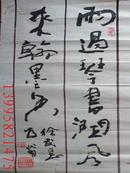 雨過琴書潤風
來翰墨香
13995821475